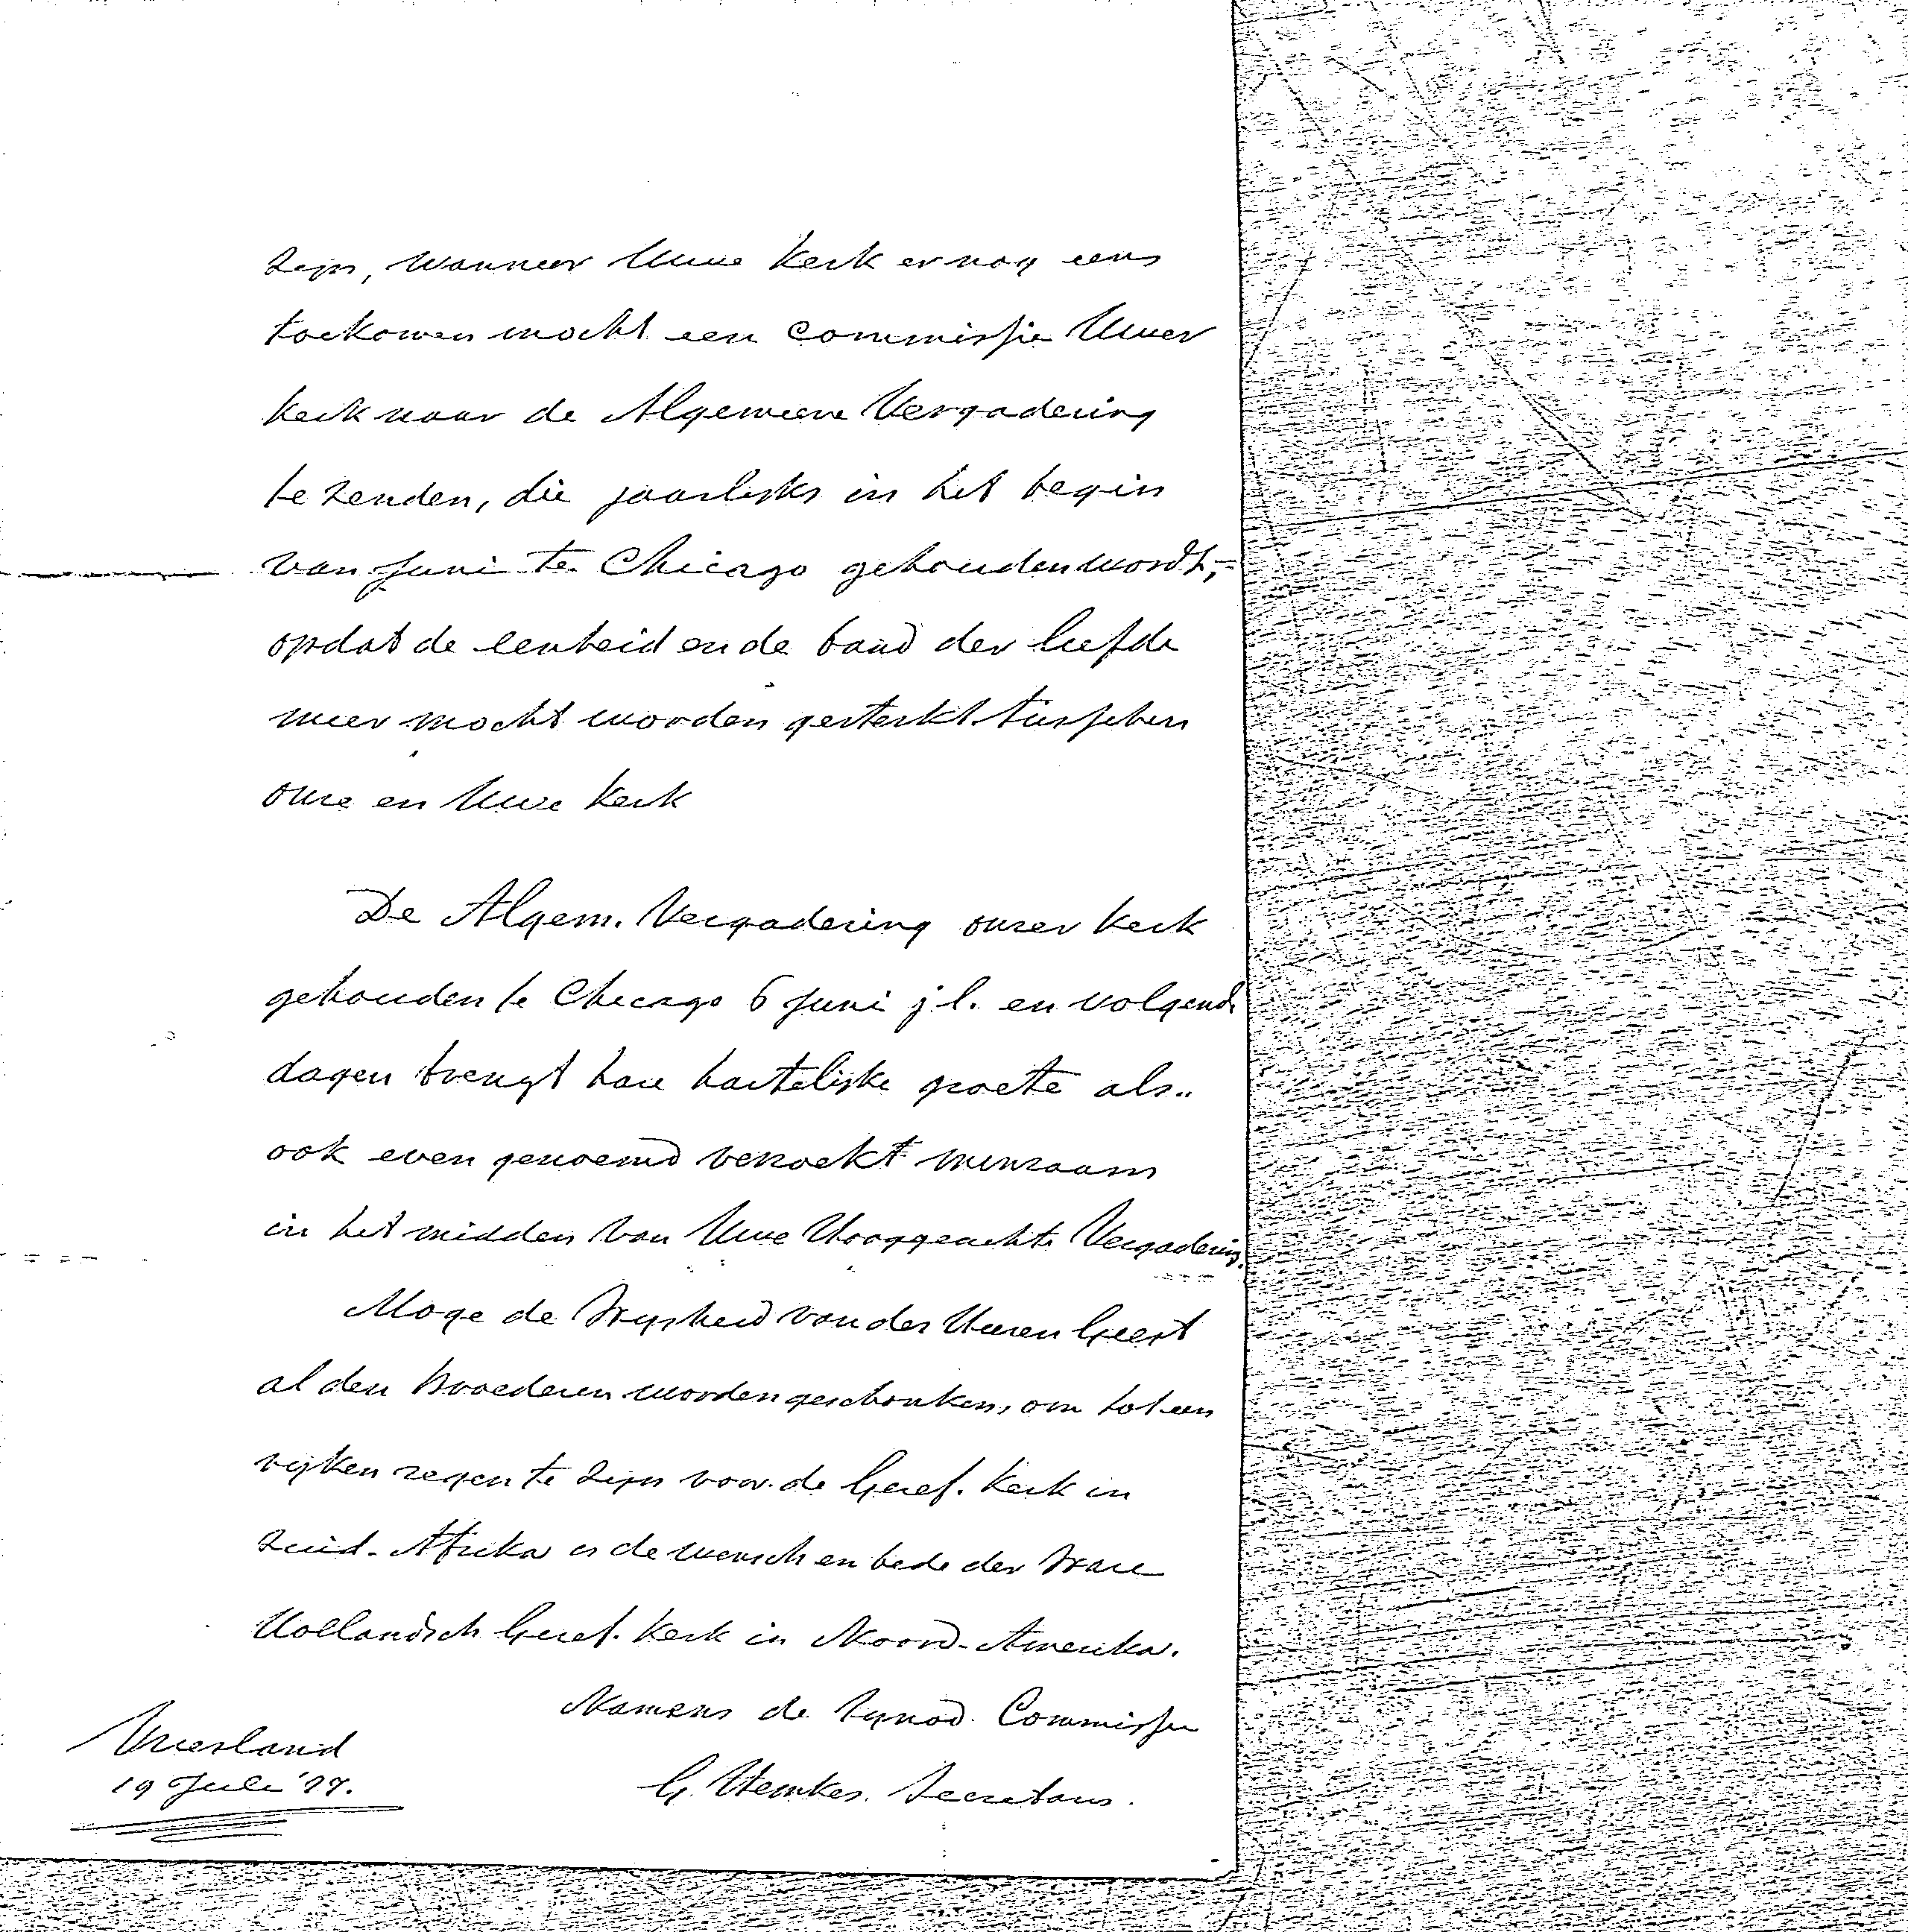 zijn, wanneer Uwe Kerk er nog eens
toekomen mocht een commissie Uwer
Kerk naar de Algemeene Vergadering
te zenden, die jaarlijks in het begin
van Juni te Chicago gehouden wordt,=
opdat de eenheid en de band der liefde
meer mocht worden gesterkt tusschen
onze en Uwe Kerk
De Algem. Vergadering onzer Kerk
gehouden te Chicago 6 Juni jl. en volgende
dagen brengt hare hartelijke groete als..
ook even genoemd verzoekt minzaam
in het midden van Uwe Hooggeachte Vergadering.
Moge de Wijsheid van des Heeren Geest
al den Broederen worden geschonken, om tot een
rijken zegen te zijn voor de Geref. Kerk in
Zuid-Afrika is de wensch en bede der Ware
Hollandsch Geref. Kerk in Noord-Amerika.
Namens de Synod. Commissie
G. Hemkes. Secretaris.
Vriesland
19 Juli '77.